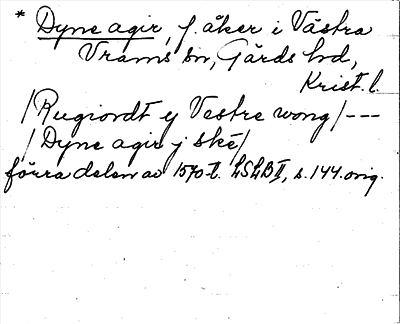 * Dyne agir, f. åker i Västra
Vrams sn, Gärds hd,
Krist. l.
/Rugiordt ej Vestre wong/---
/Dyne agir j ské/
förra delen av 1570-t. LSLB II, s. 144. orig.